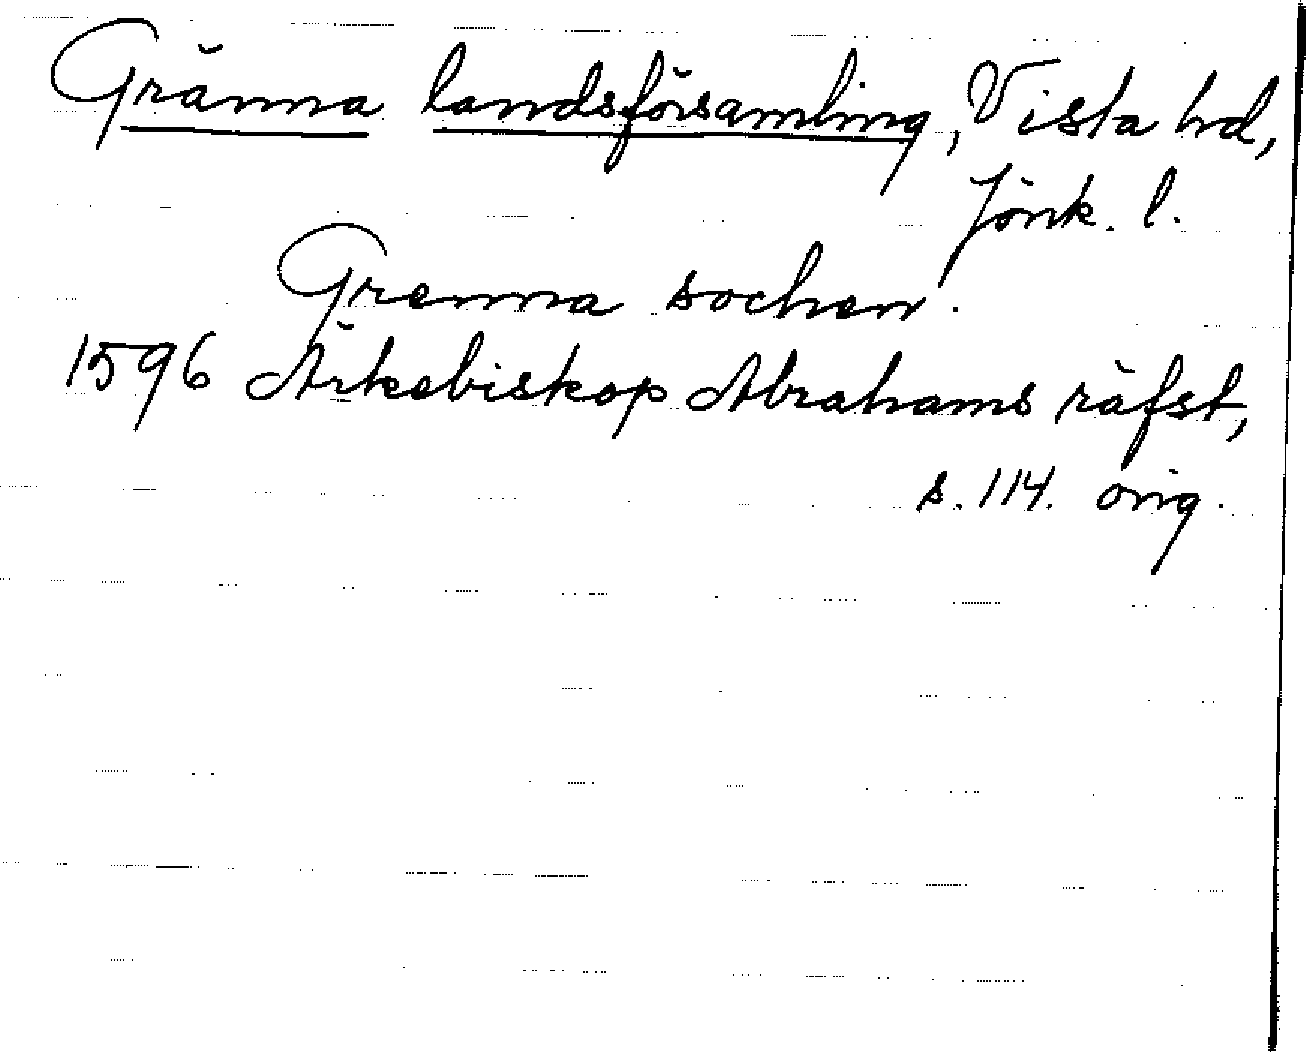 Gränna landsförsamling, Vista hd,
Jönk. l.
Grenna sochen.
1596 Ärkebiskop Abrahams räfst,
s. 114. orig.